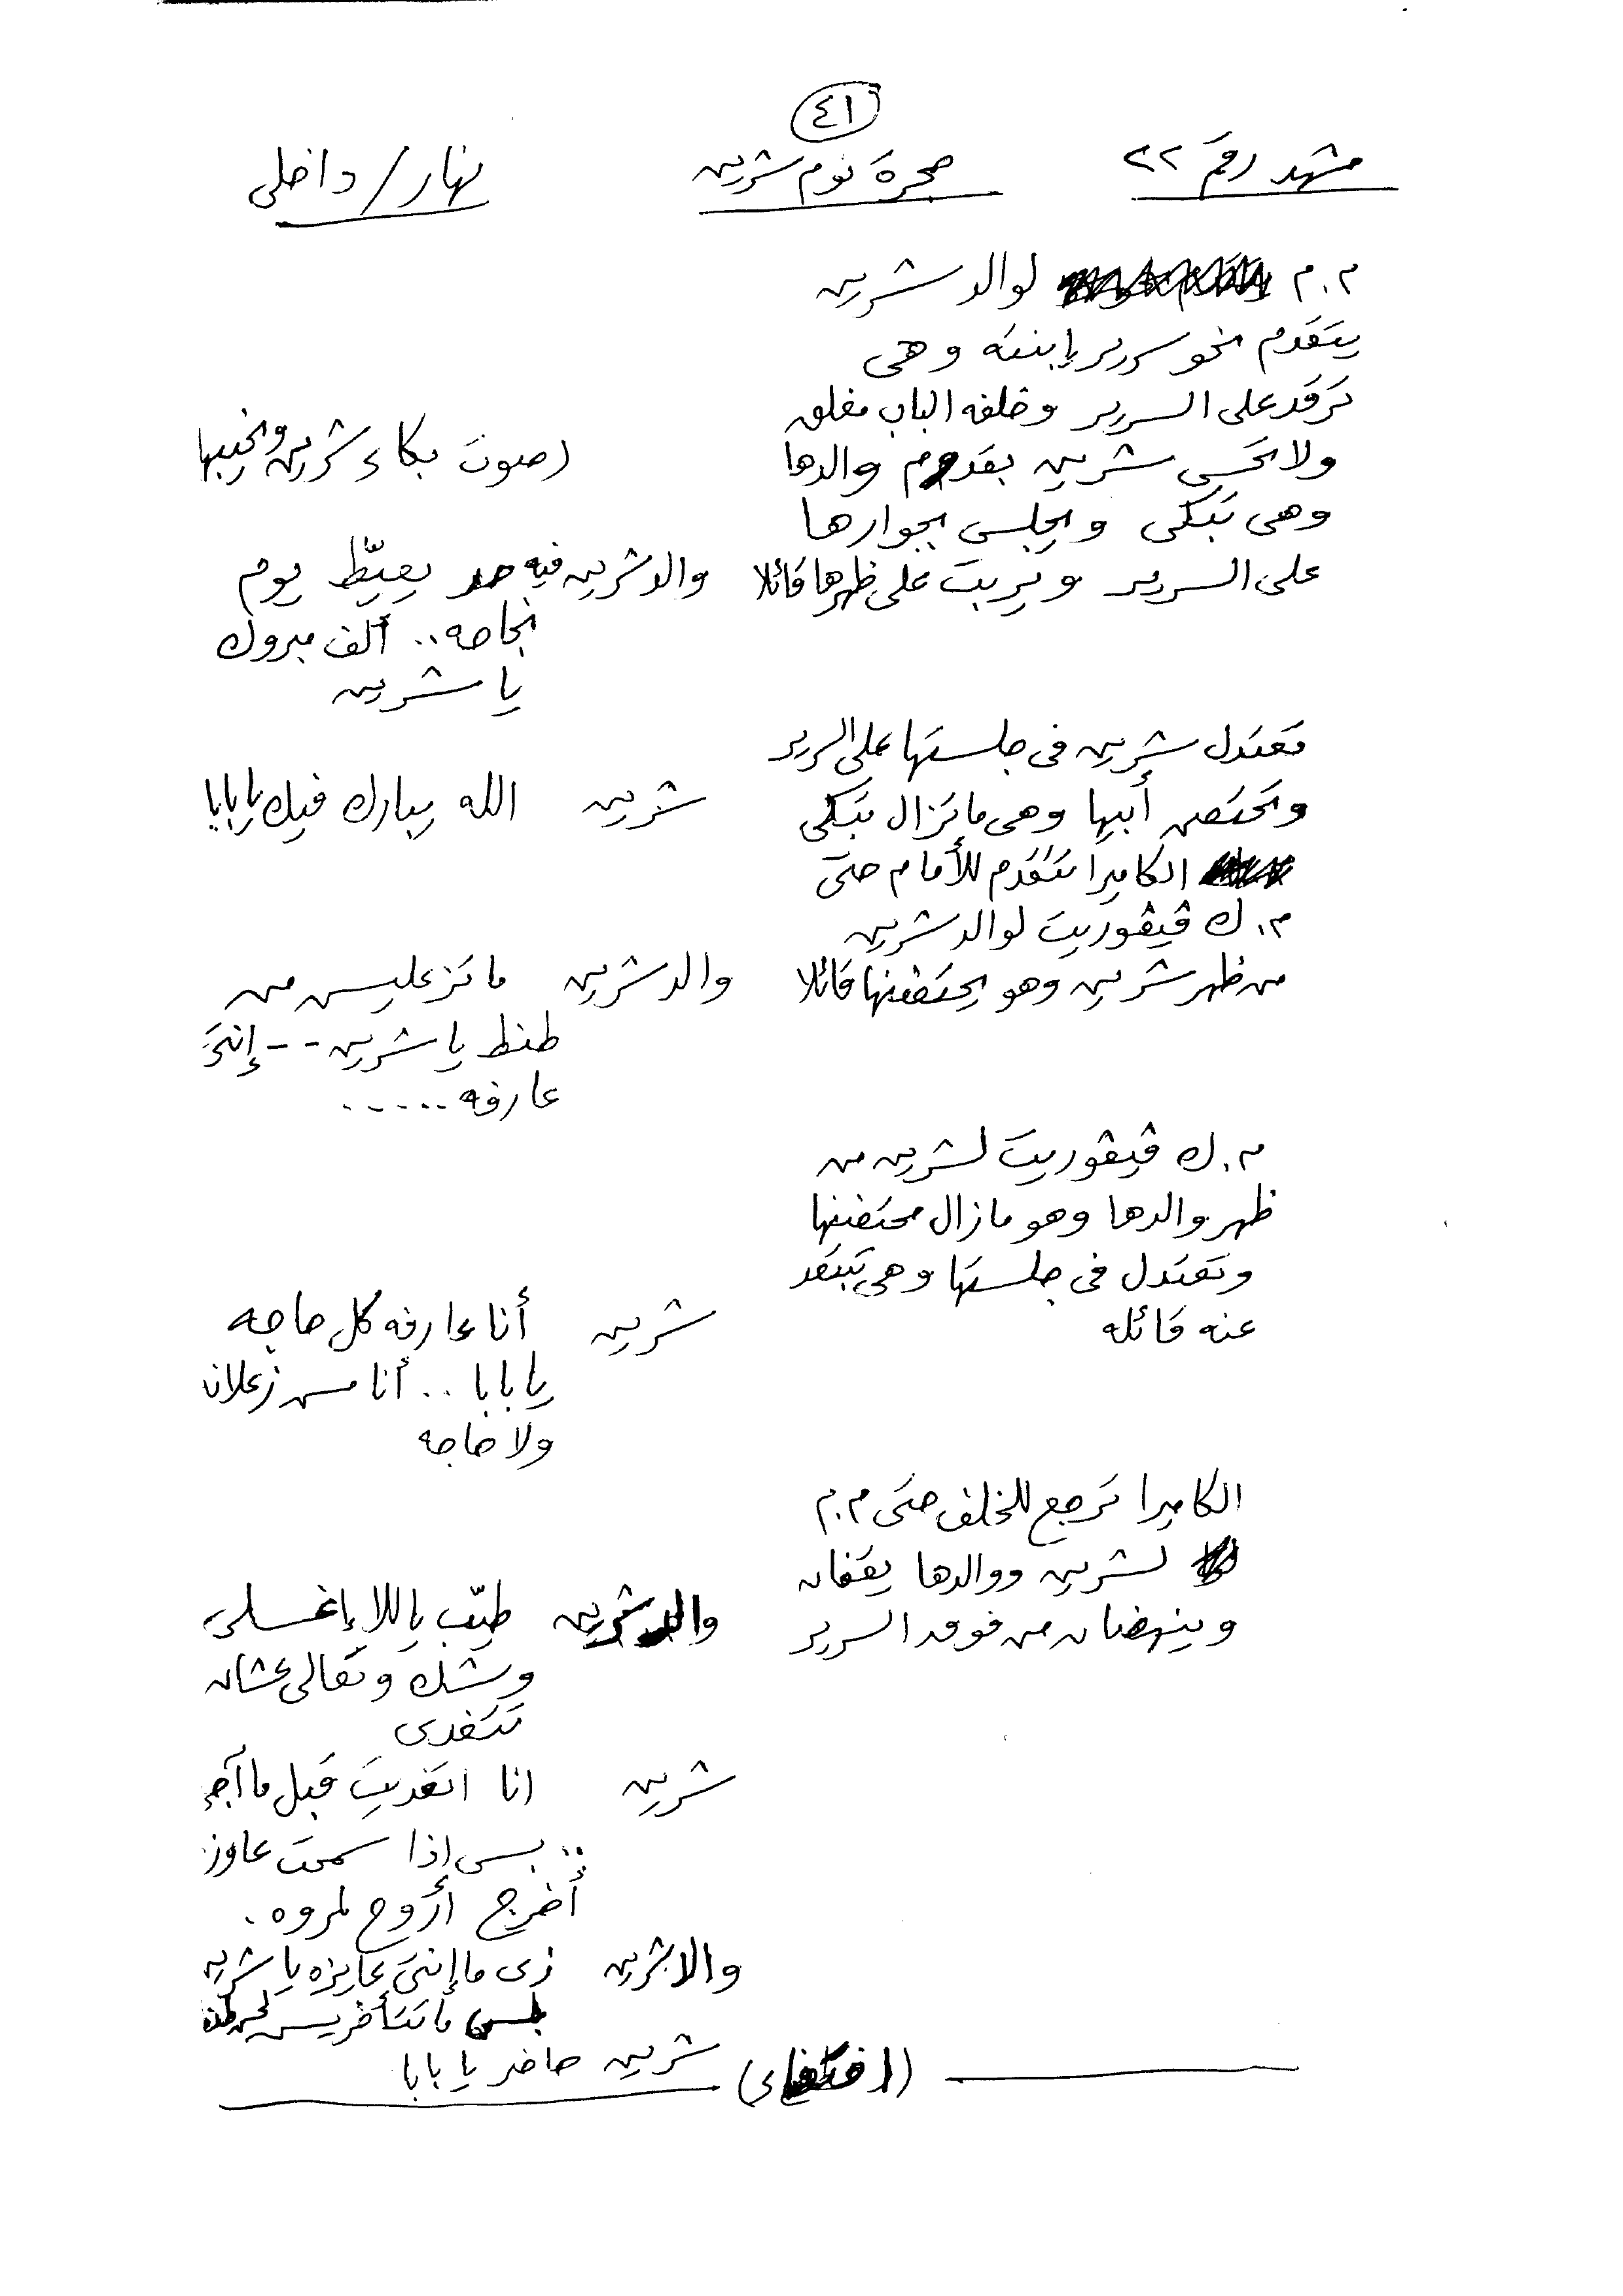 ٤١
مشهد رقم ٢٢ حجرة نوم شرين نهار/داخلى
م.م لوالد شرين
يتقدم نحو سرير إبنته وهى
ترقد على السرير وخلفه الباب مغلق
(صوت بكاء شرين ونحيبها
ولا تحس شرين بقدوم والدها
وهى تبكى ويجلس بجوارها
على السرير ويربت على ظهرها قائلا والد شرين فيه حد يعيّط يوم
نجاحه.. ألف مبروك
يا شرين
تعتدل شرين فى جلستها على السرير
وتحتضن أبيها وهى ماتزال تبكى شرين الله يبارك فيك يا بابا
الكاميرا تتقدم للأمام حتى
م.ك ڤيڤوريت لوالد شرين
من ظهر شرين وهو يحتضنها قائلا والد شرين ماتزعليش من
طنط يا شرين -- إنتى
عارفه .....
م.ك ڤيڤوريت لشرين من
ظهر والدها وهو مازال محتضنها
وتعتدل فى جلستها وهى تبتعد
عنه قائله شرين أنا عارفه كل حاجه
يا بابا .. أنا مش زعلانه
ولا حاجه
الكاميرا ترجع للخلف حتى م.م
لشرين ووالدها يقفان
وينهضان من فوق السرير والد شرين طيّب ياللا إغسلى
وشك وتعالى عشان
تتغدى
شرين انا اتغديت قبل ما آجى
.. بس إذا سمحت عاوزه
أخرج أروح لمروه.
والد شرين زى ما إنتى عايزه يا شرين
بس ماتتأخريش
شرين حاضر يا بابا